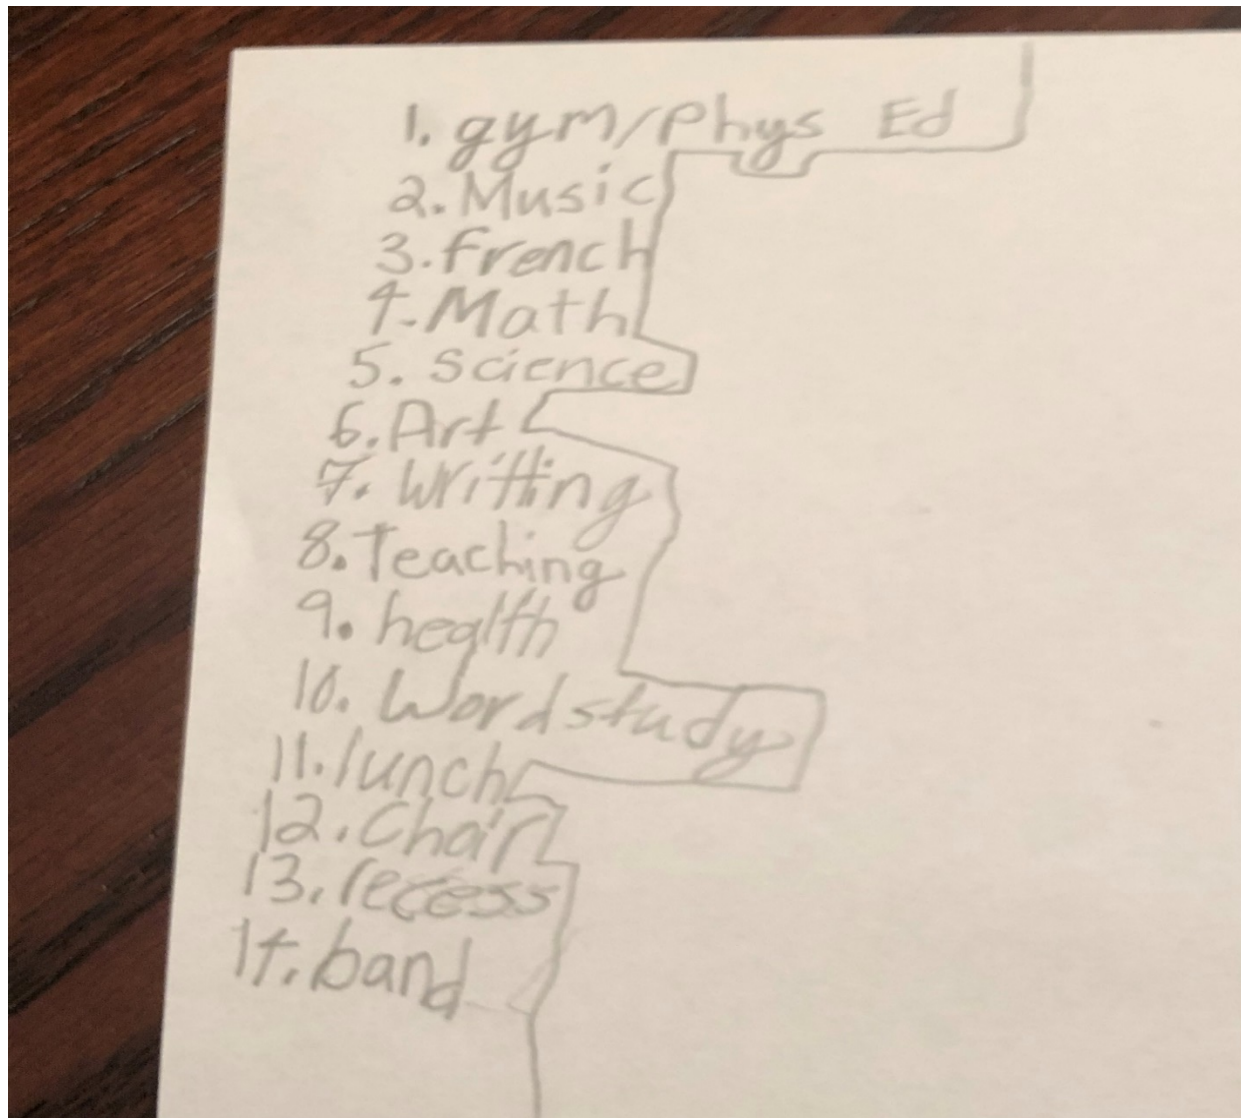 1. gym/Phys Ed
2. Music
3. french
4. Math
5. Science
6. Art
7. Writting
8. Teaching
9. health
10. Wordstudy
11. lunch
12. Chair
13. recess
14. band